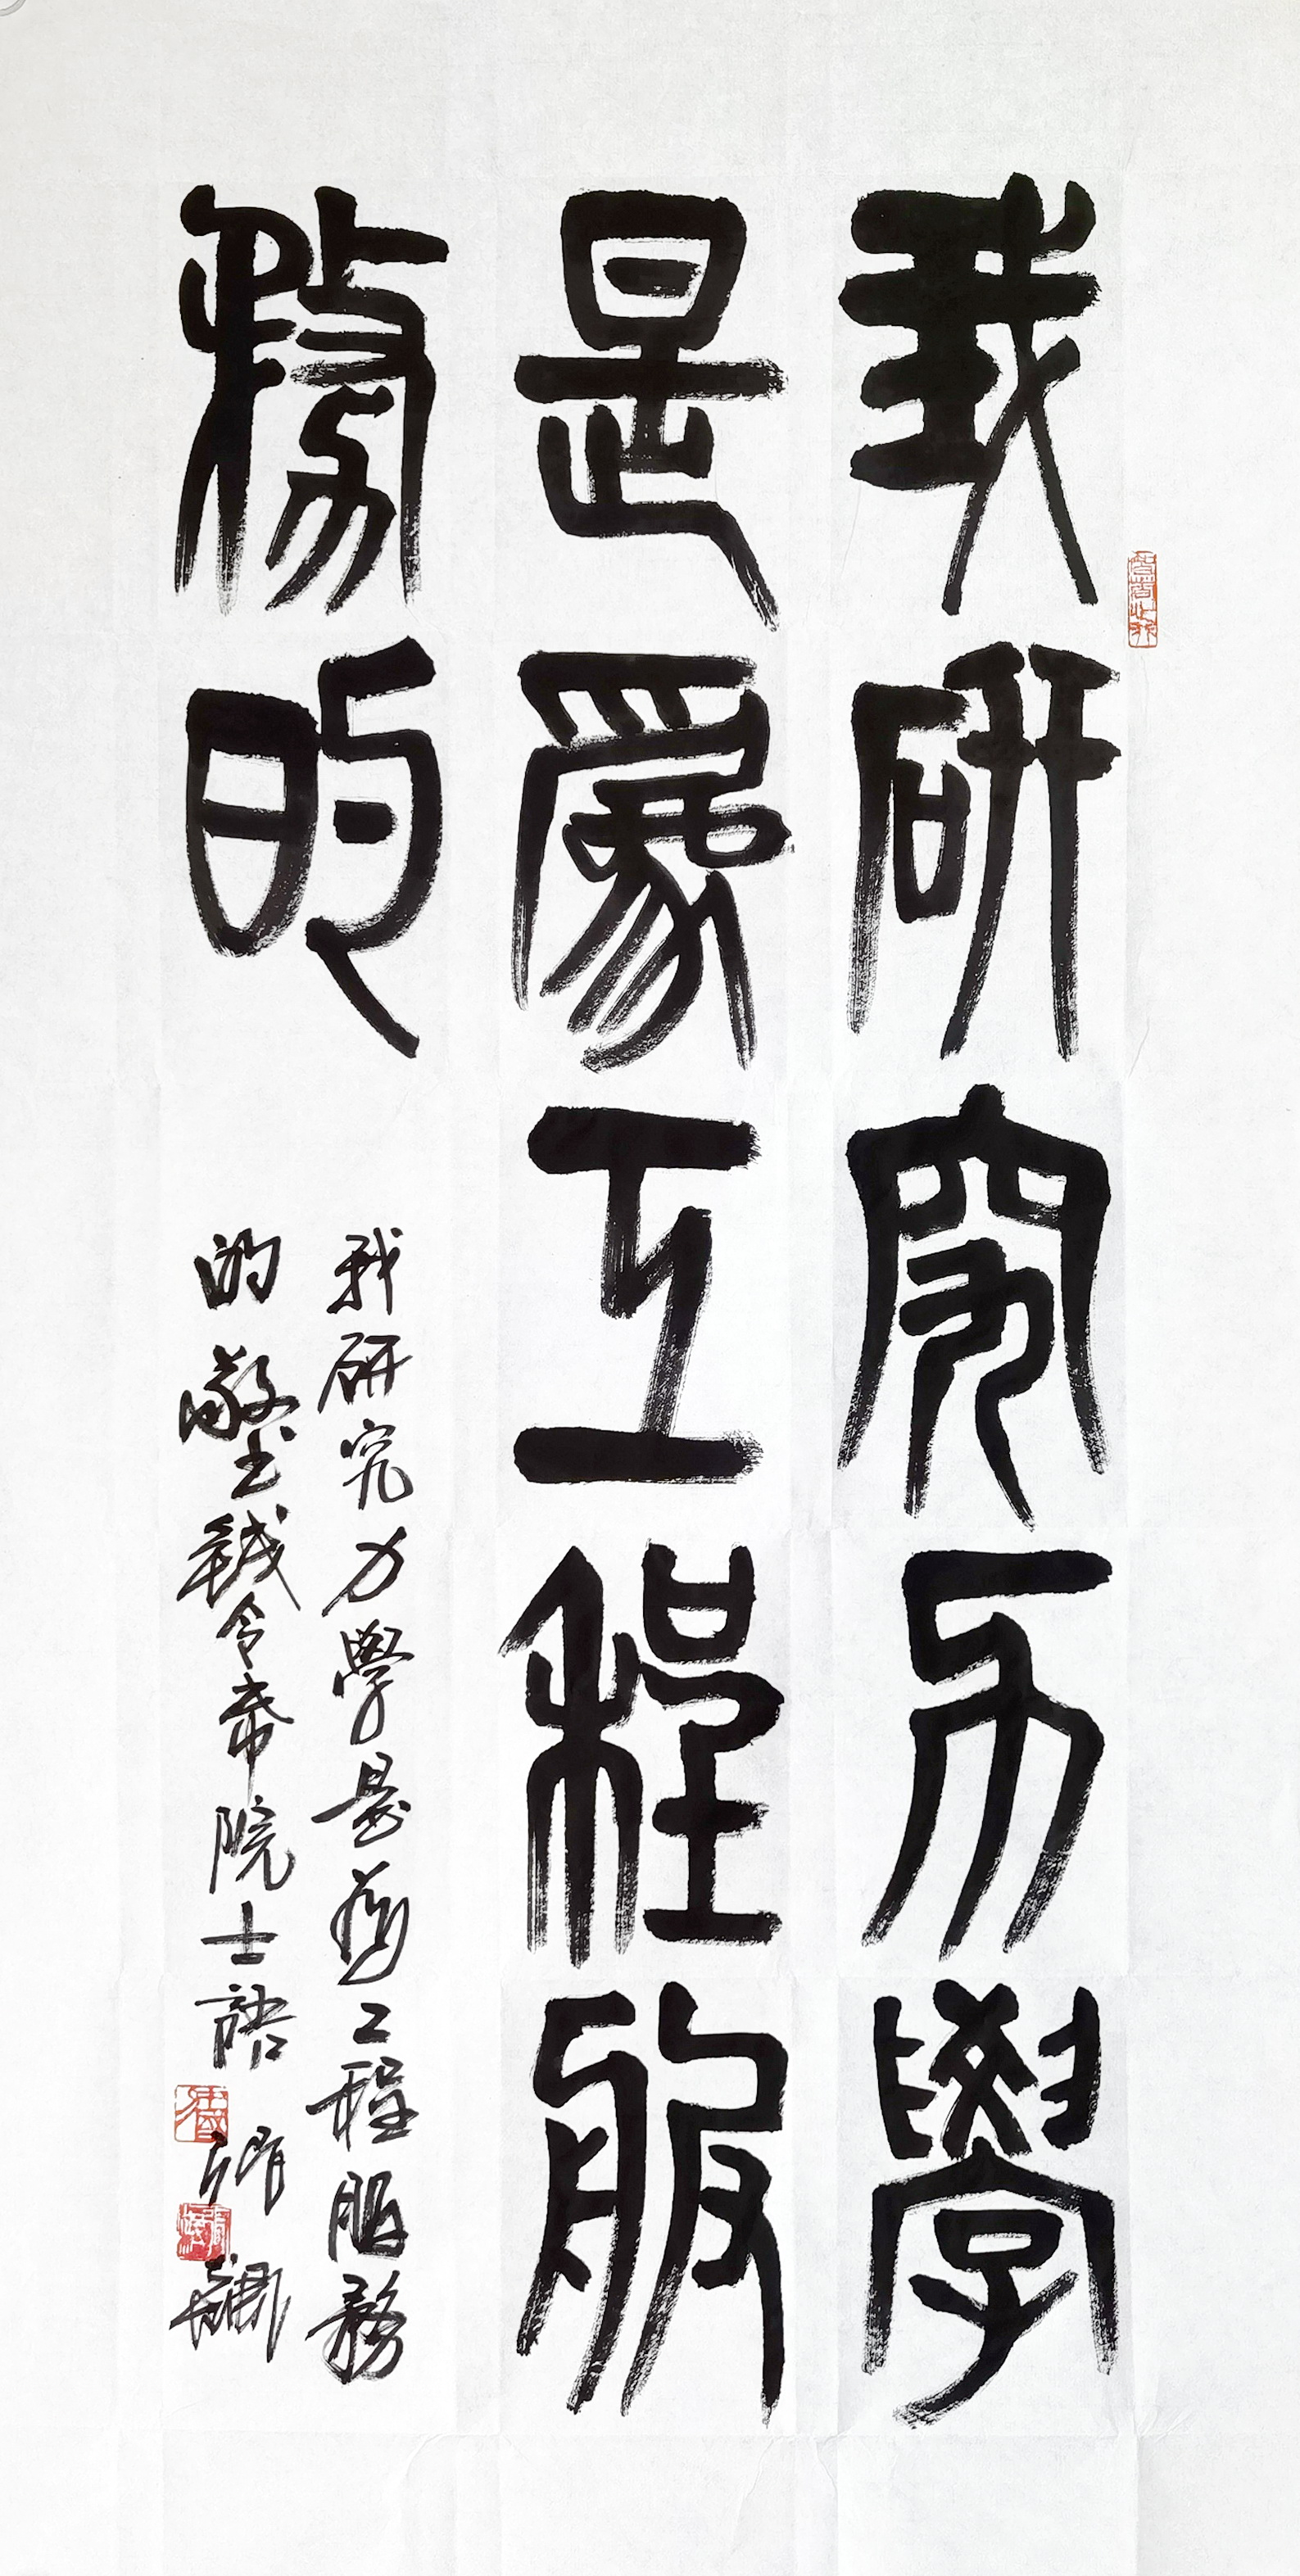 我研究力學
是爲工程服
務的
我研究力學是爲工程服務
的 敬書錢令希院士語